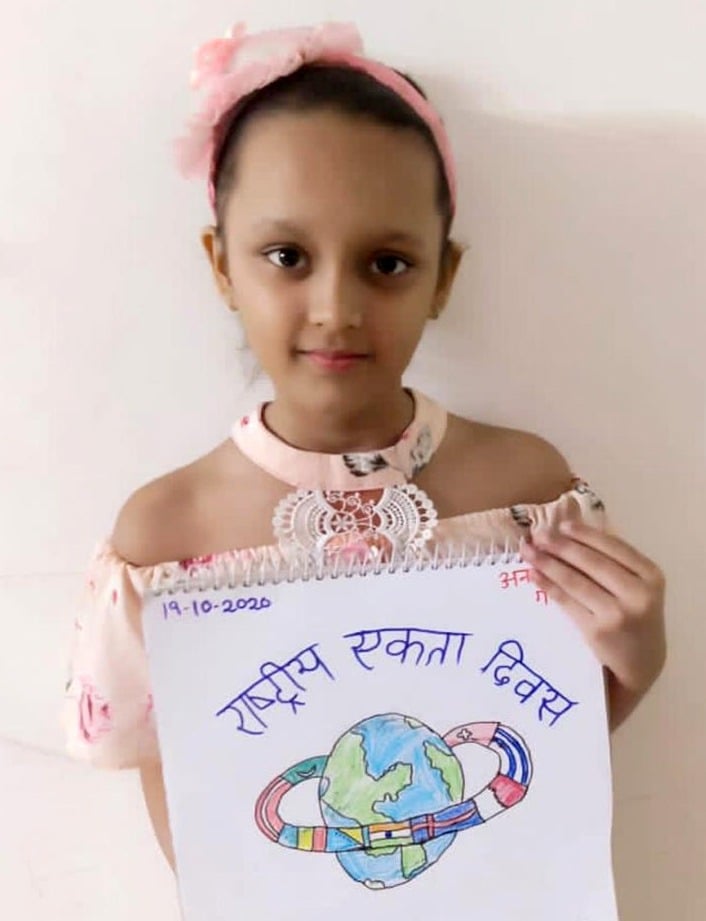 19-10-2020
राष्ट्रीय एकता दिवस